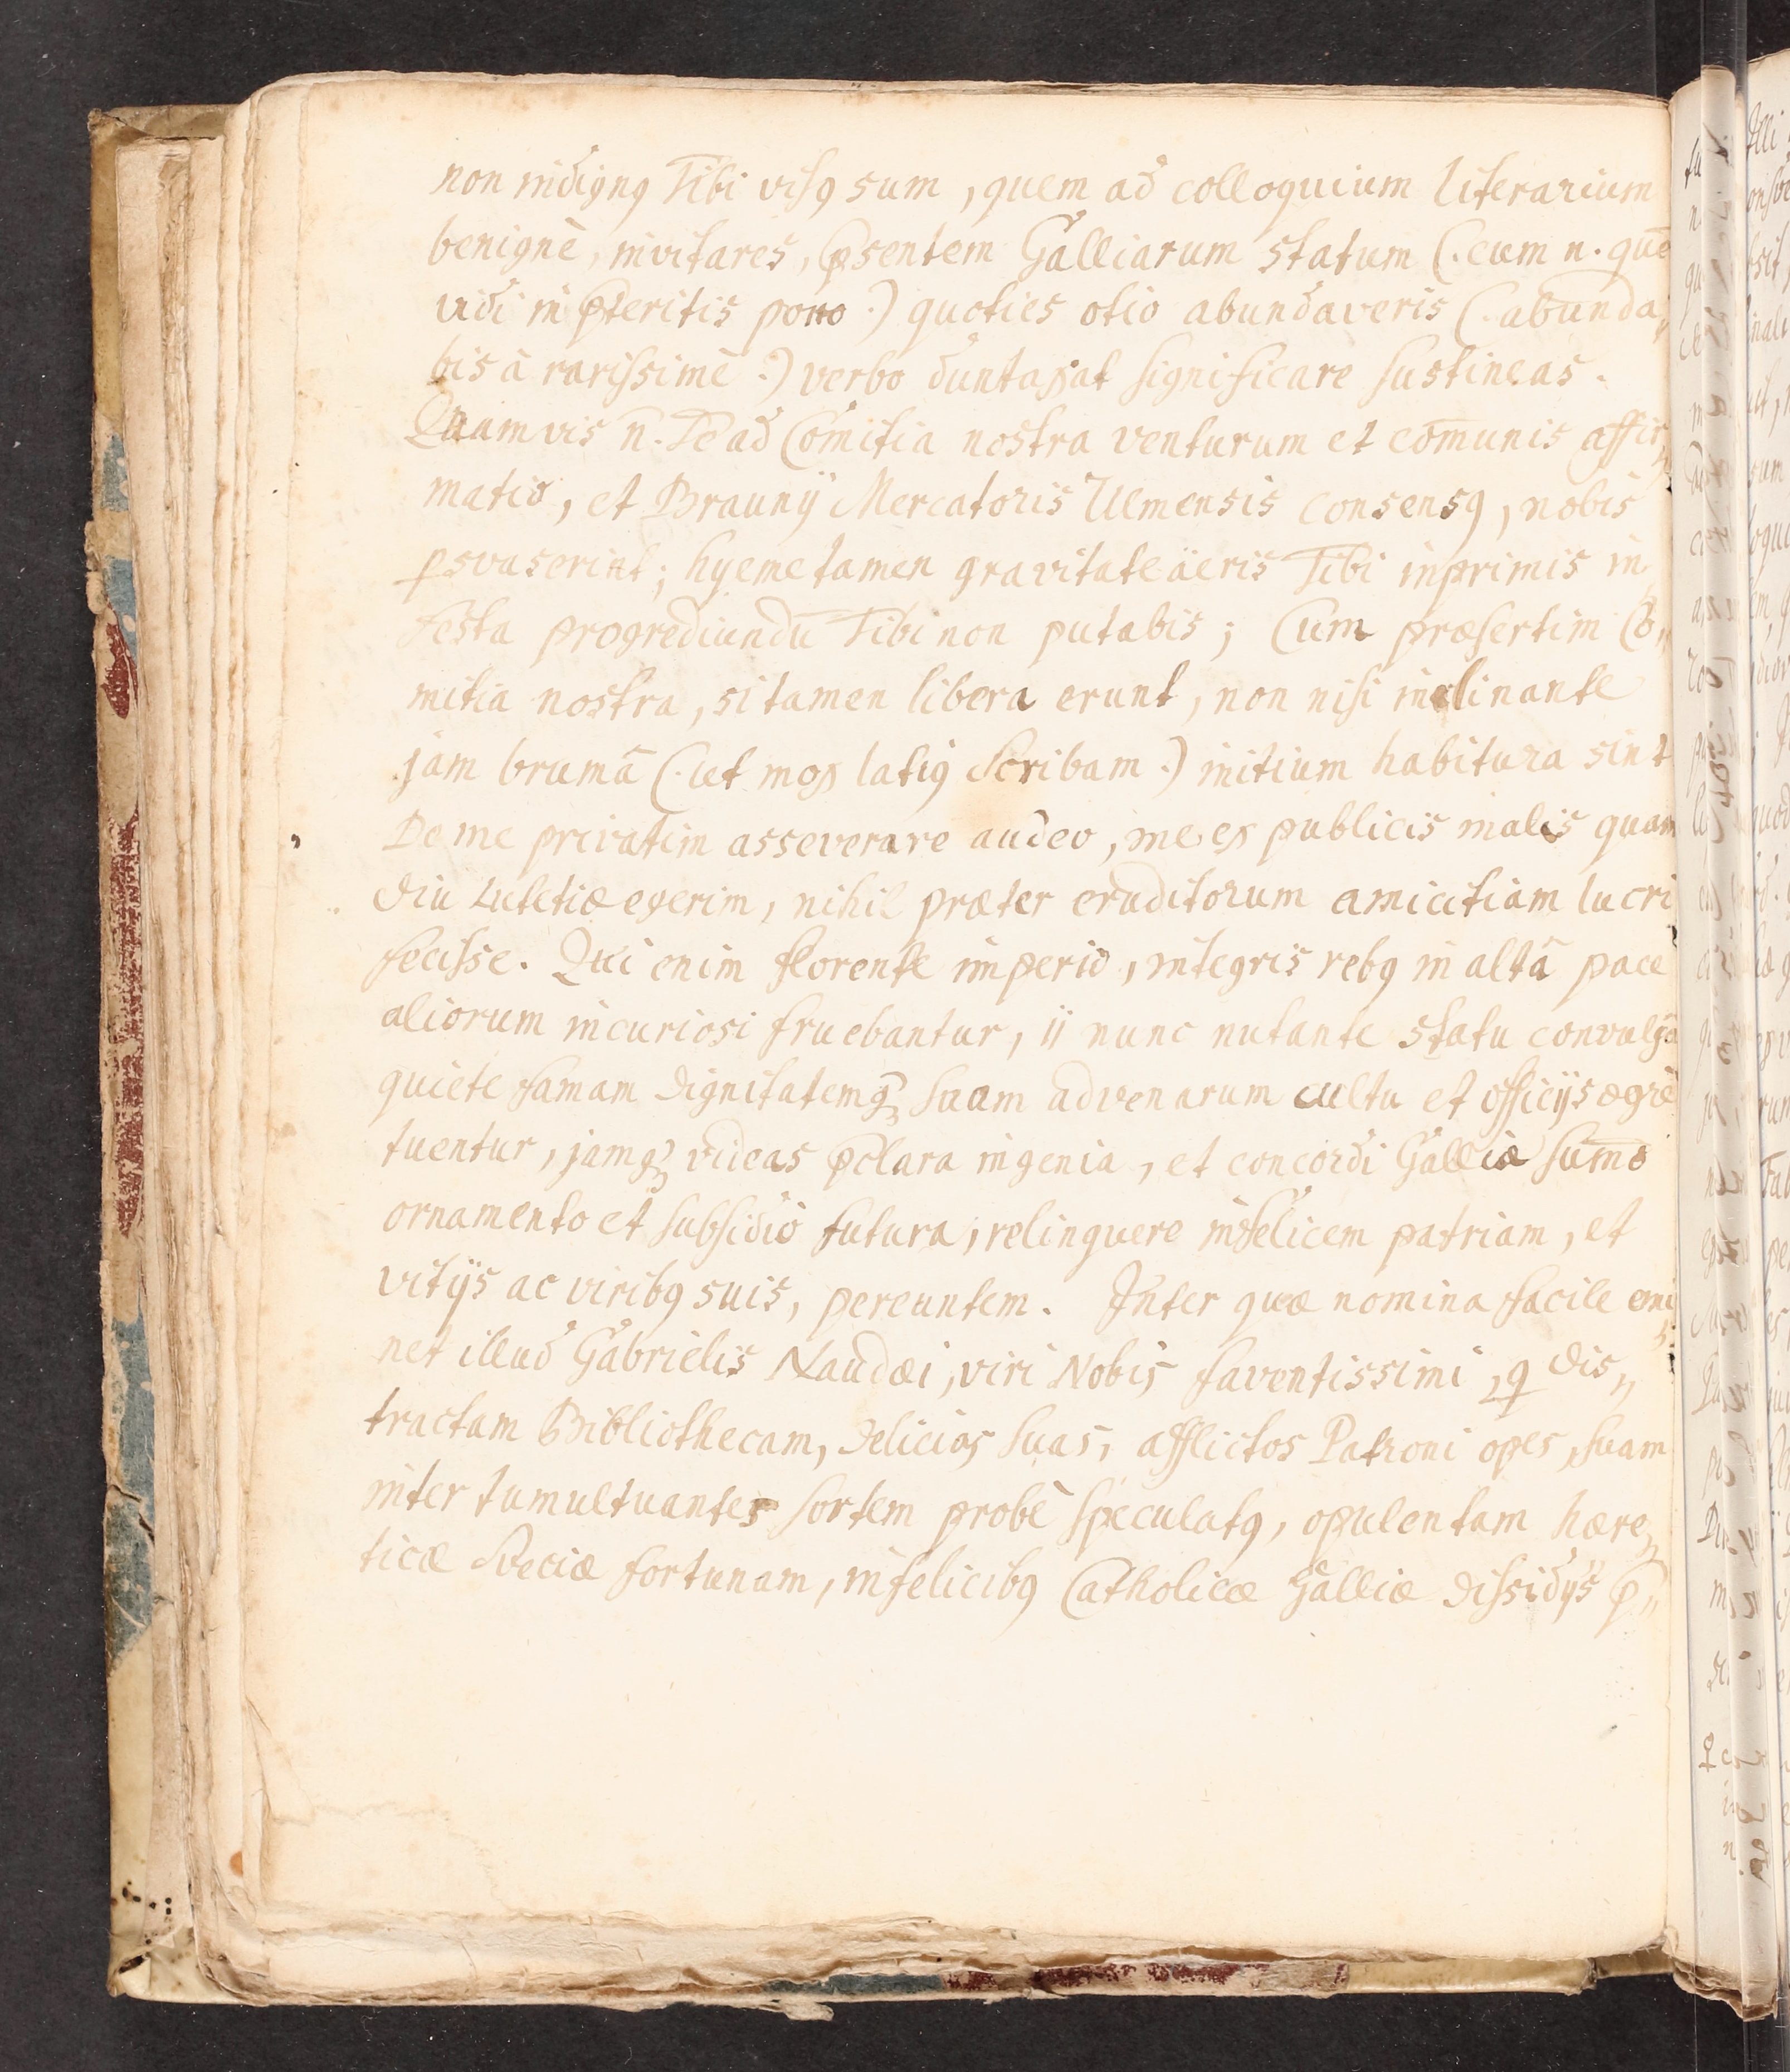 non indignꝰ Tibi visꝰ sum, quem ad colloquium literarium
benignè, invitares, p̄sentem Galliarum statum (. eum n. quē
vidi in p̄teritis pono .) quoties otio abundaveris (. abunda„
bis ā rarissimè .) verbo duntaxat significare sustineas.
Quamvis n̄. Te ad Comitia nostra venturum et com̄unis affir„
matio, et Braunij Mercatoris Ulmensis consensꝰ, nobis
ꝑsvaserint; hyeme tamen gravitate äeris Tibi inprimis in„
festa progrediundū Tibi non putabis; Cum præsertim Co„
mitia nostra, si tamen libera erunt, non nisi inclinante
jam brumâ (. ut mox latiꝰ scribam .) initium habitura sint
De me privatim asseverare audeo, me ex publicis malis quam
diu Lutetiæ egerim, nihil præter eruditorum amicitiam lucri
fecisse. Qui enim florente imperio, integris rebꝰ in altâ pace
aliorum incuriosi fruebantur, ij nunc nutante statu convulsa
quiete famam dignitatemqꝫ suam advenarum cultu et officijs ægrè
tuentur, jamqꝫ videas p̄clara ingenia, et concordi Galliæ sum̄o
ornamento et subsidio futura, relinquere infelicem patriam, et
vitijs ac viribꝰ suis, pereuntem. Inter quæ nomina facile emi
net illud Gabrielis Naudæi, viri Nobis faventissimi, q dis„
tractam Bibliothecam, delicias suas, afflictos Patroni opes, suam
inter tumultuantes sortem probè speculatꝰ, opulentam hære„
ticæ Sveciæ fortunam, infelicibꝰ Catholicæ Galliæ dissidijs p̄„